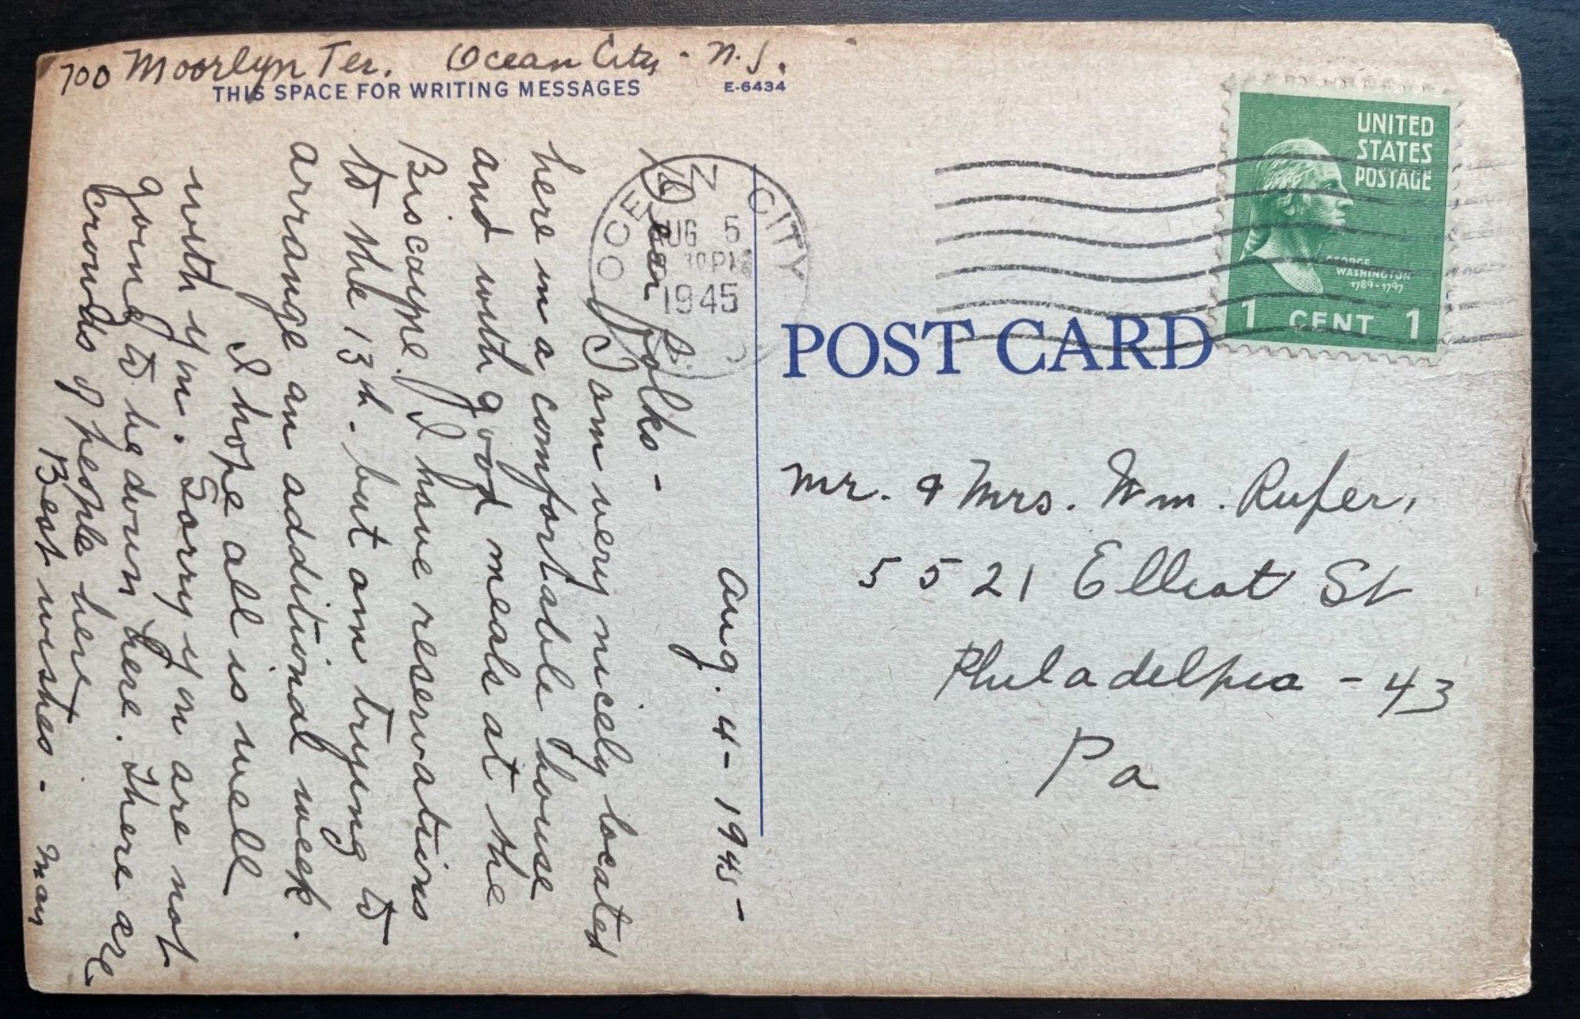 700 Moorlyn Ter. Ocean City - N.J.
THIS SPACE FOR WRITING MESSAGES
E-6434
Aug. 4 - 1945 -
Dear Folks -
I am very nicely located
here in a comfortable house
and with good meals at the
Biscayne. I have reservations
to the 13th. but am trying to
arrange an additional week.
I hope all is well
with you. Sorry you are not
going to be down here. There are
crowds of people here
Best wishes - May
OCEAN CITY
N
AUG 5
30 PM
1945
UNITED
STATES
POSTAGE
GEORGE
WASHINGTON
1789-1797
1 CENT 1
POST CARD
Mr. & Mrs. Wm. Rufer,
5521 Elliot St
Philadelphia - 43
Pa